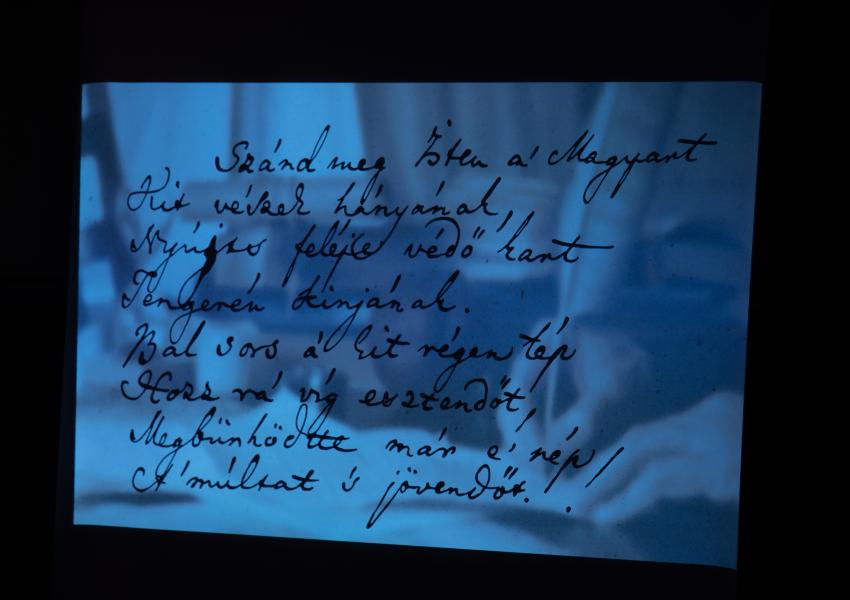 Szánd meg Isten a' Magyart
Kit vészek hányának,
Nyújts feléje védő kart
Tengerén kínjának.
Bal sors a' kit régen tép
Hozz rá víg esztendőt,
Megbűnhödte már e' nép
A' múltat 's jövendőt!